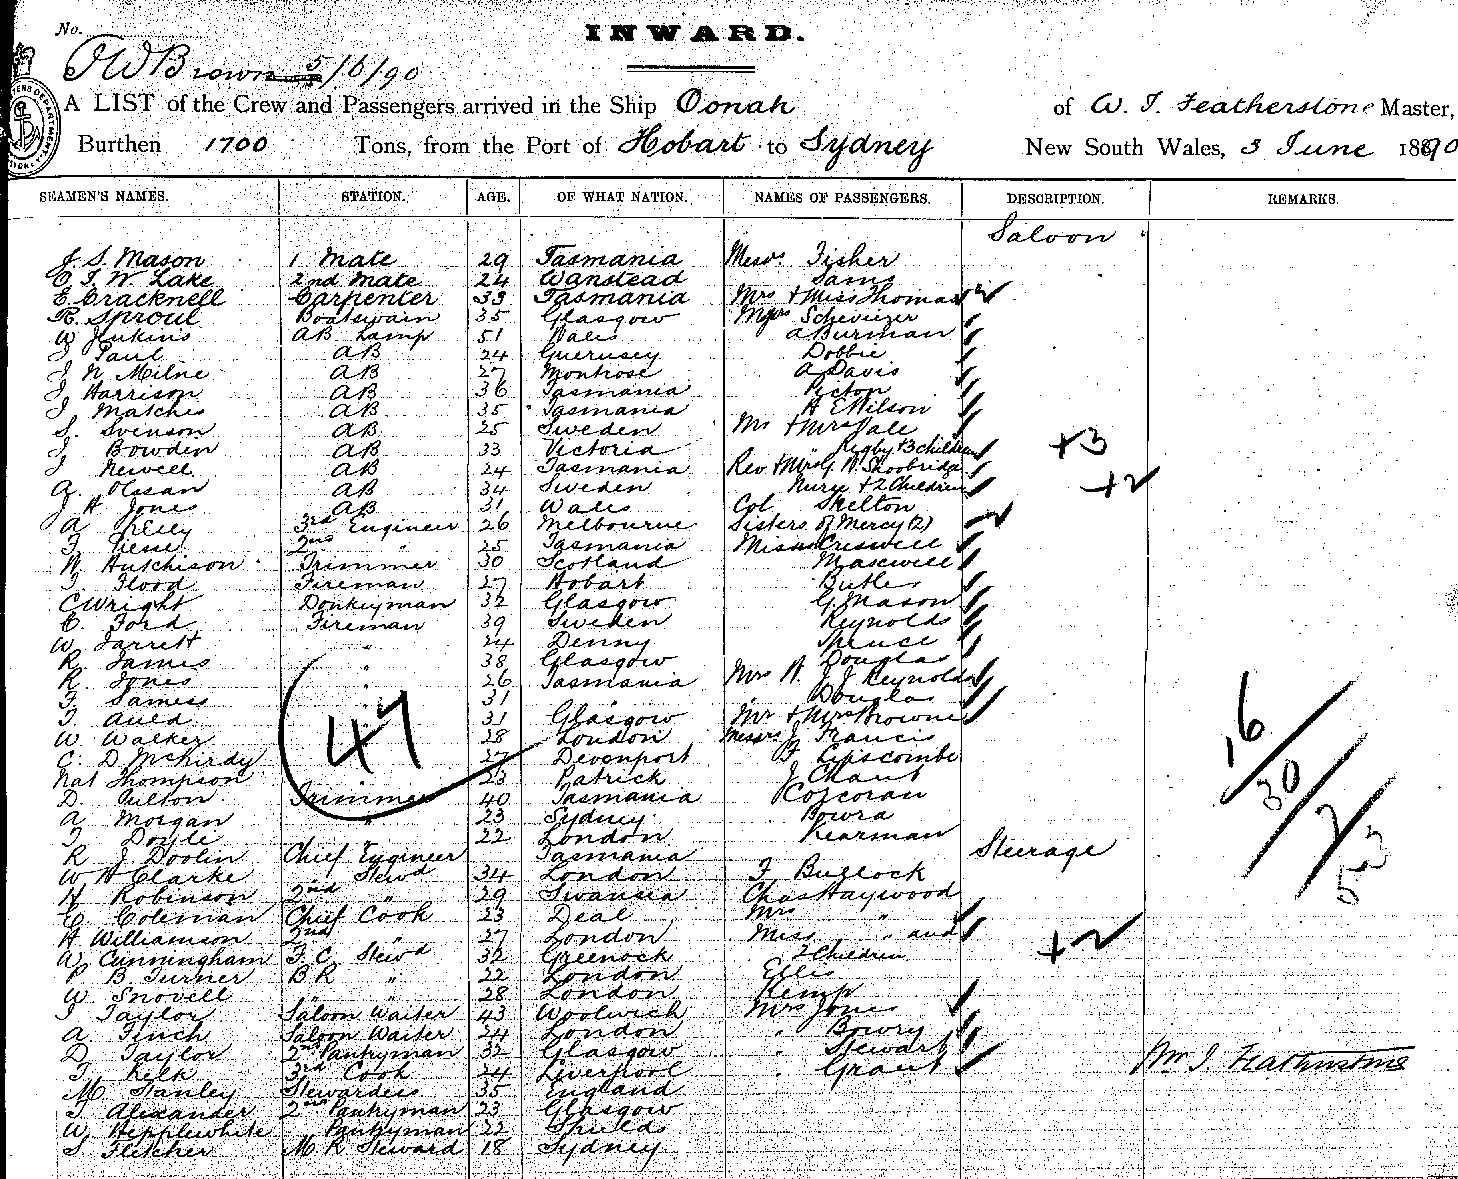 No.
INWARD.
JW Brown 5/6/90
A LIST of the Crew and Passengers arrived in the Ship Oonah of W. T. Featherstone Master,
Burthen 1700 Tons, from the Port of Hobart to Sydney New South Wales, 3 June 1890
SEAMEN'S NAMES. STATION. AGE. OF WHAT NATION. NAMES OF PASSENGERS. DESCRIPTION. REMARKS.
Saloon
J. S. Mason 1 Mate 29 Tasmania Messrs Fisher
C. T. W. Lake 2nd Mate 24 Wanstead Sams
E. Cracknell Carpenter 33 Tasmania Mrs + Miss Thomas
R. Sproul Boatswain 35 Glasgow Scheviezer
W Jenkins AB Lamp 51 Wales A Burman
J Paul AB 24 Guernsey Dobbie
J N Milne AB 27 Montrose A Davis
J Harrison AB 36 Tasmania Picton
J Matches AB 35 Tasmania H E Wilson
S. Svenson AB 25 Sweden Mr + Mrs Vale
J Bowden AB 33 Victoria Rigby + 3 children +3
J Newell AB 24 Tasmania Rev + Mrs G. W. Shoobridge
G. Olssan AB 34 Sweden Nurse + 2 Children +2
J H Jones AB 31 Wales Col Skelton
A Kelly 3rd Engineer 26 Melbourne Sisters of Mercy (2)
F. Vene 2nd " 25 Tasmania Misses Creswell
W Hutchison Trimmer 30 Scotland Maxwell
T Flood Fireman 27 Hobart Butler
C Wright Donkeyman 32 Glasgow G. Mason
C. Ford Fireman 39 Sweden Reynolds
W Jarrett " 24 Denny Spence
R. James " 38 Glasgow Douglas
R. Jones " 26 Tasmania Mrs H. J. J Reynolds
F. Samess " 31 " Douglas
T. Auld 31 Glasgow Mr + Mrs Browne
W Walker 28 London Messrs J Francis
C. D McHirdy 27 Devonport Lipscombe
Nat Thompson 23 Patrick J Chant
D. Fulton Trimmer 40 Tasmania Corcoran
A Morgan " 23 Sydney Bowra
T Doyle 22 London Kearman
47
16
30
7
53
Steerage
R J. Doolin Chief Engineer Tasmania
W H Clarke " Stewd 34 London F Bullock
H Robinson 2nd " 29 Swansea Chas Haywood
C. Coleman Chief Cook 23 Deal Mrs "
H Williamson 2nd " 27 London Miss " and
W. Cunningham F. C. Stewd 32 Greenock 2 Children +2
P B. Turner B R " 22 London Ellis
W Snovell " " 28 London Kemp
J Taylor Saloon Waiter 43 Woolwich Mrs Jones
A Finch Saloon Waiter 24 London " Bowry
D Taylor 2nd Pantryman 32 Glasgow " Stewart
J. Kelk 3rd Cook 24 Liverpool " Grant
Wm T. Featherstone
M. Stanley Stewardess 35 England
T Alexander 2nd Pantryman 23 Glasgow
W. Hepplewhite Pantryman 22 Shields
J Fletcher M R Steward 18 Sydney